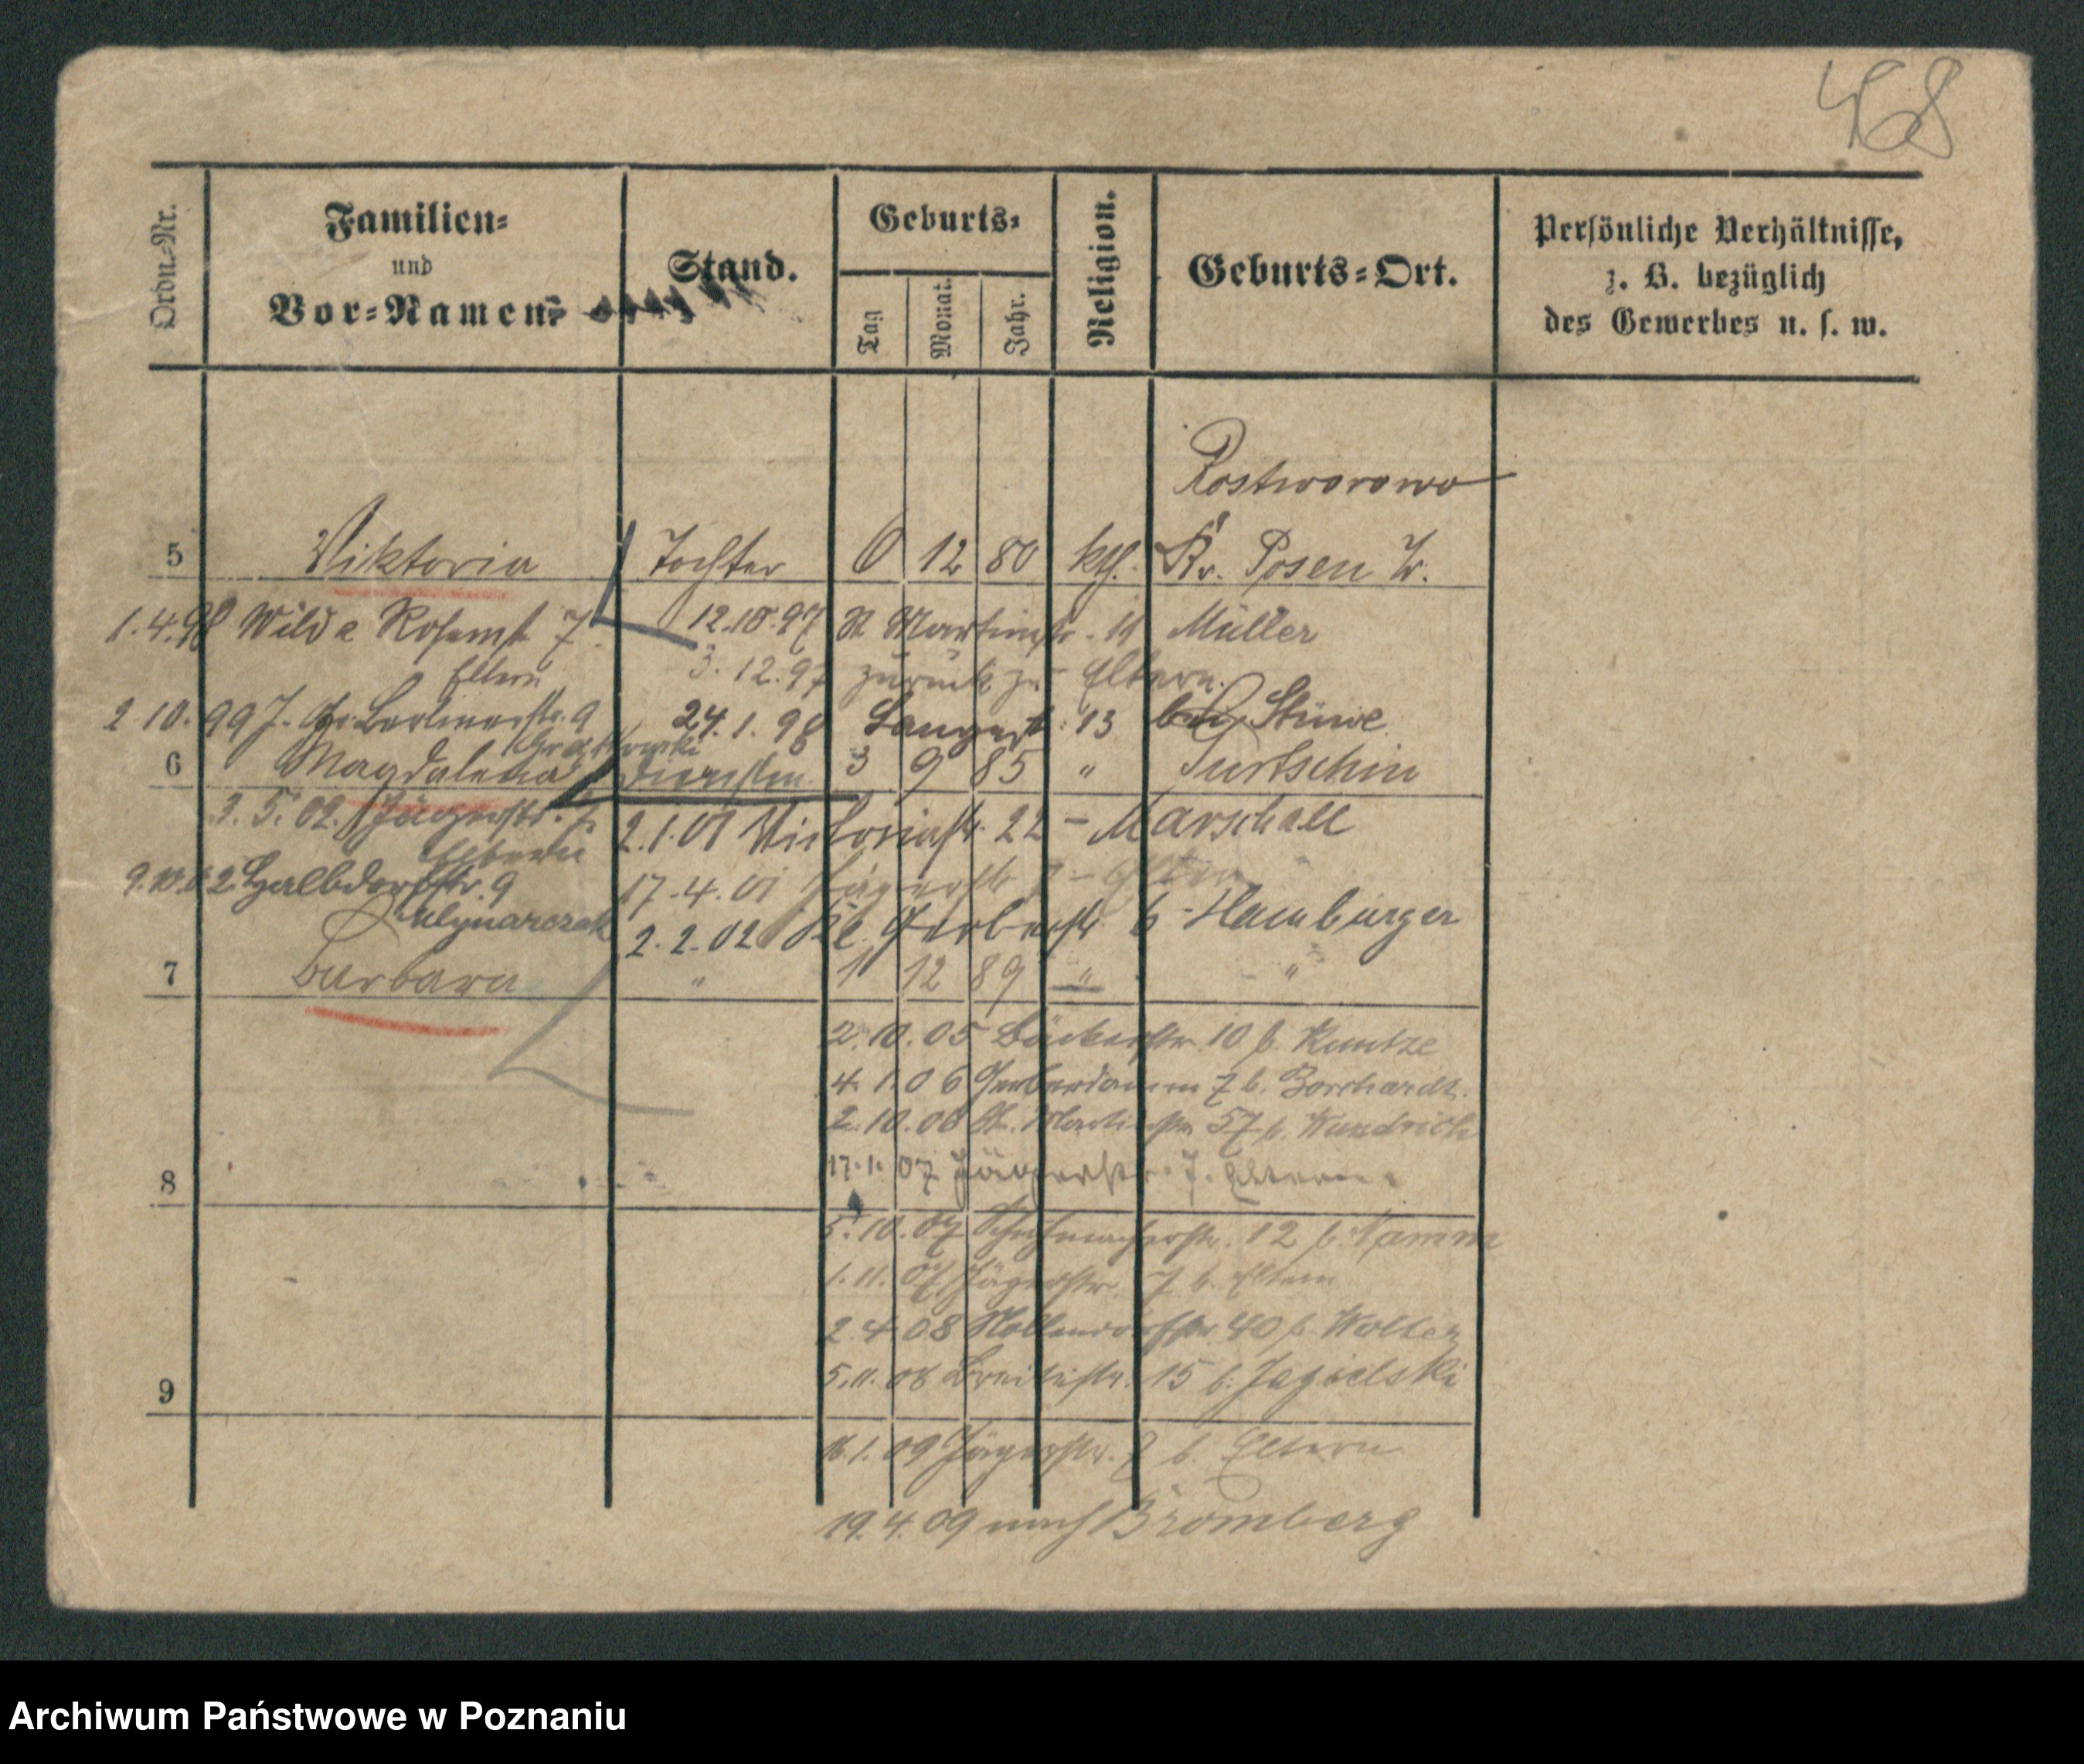 468
Ordn.-Nr.
Familien-
und
Vor-Namen
Stand.
Geburts-
Tag
Monat.
Jahr.
Religion.
Geburts-Ort.
Persönliche Verhältnisse,
z. B. bezüglich
des Gewerbes u. s. w.
Rostworowo
5 Viktoria Tochter 6 12 80 kth. Kr. Posen W.
1.4.98 Wilda Rosenstr 7 12.10.97 St Martinstr. 11 Müller
Eltern 3.12.97 zurück zu Eltern.
2.10.99 Gr. Berlinerstr. 9 24.1.98 Langest. 13 bei Stüwe
6 Magdalena 3 9 85 " Turtschin
2.5.02. Jägerstr. 7. 2.1.01 Victoriastr. 22 - Marschall
Eltern
9.10.02 Halbdorfstr. 9 17.4.01 Jägerstr 7 - Eltern
Mlynarczak 2.2.02 Kl. Gerberstr 6 - Hamburger
7 Barbara " 1 12 89 " "
2.10.05 Bäckerstr. 10 b. Kuntze
4.1.06 Gerberdamm 7 b. Borchardt.
2.10.06 St. Martinstr 57 b. Wundrich
17.1.07 Jägerstr. 7. Eltern.
8
5.10.07 Schuhmacherstr. 12 b. Namm
1.11.07 Jägerstr. 7 b. Eltern
2.4.08 Nollendorfstr. 40 b. Wolter
5.11.08 Breitestr. 15 b. Jagielski
9
16.1.09 Jägerstr. 7 b. Eltern
19.4.09 nach Bromberg
Archiwum Państwowe w Poznaniu